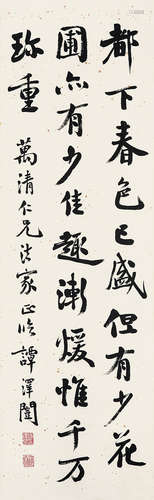 都下春色已盛但有少花
圃亦有少佳趣漸煖惟千万
珍重
萬清仁兄法家正临 譚澤闓